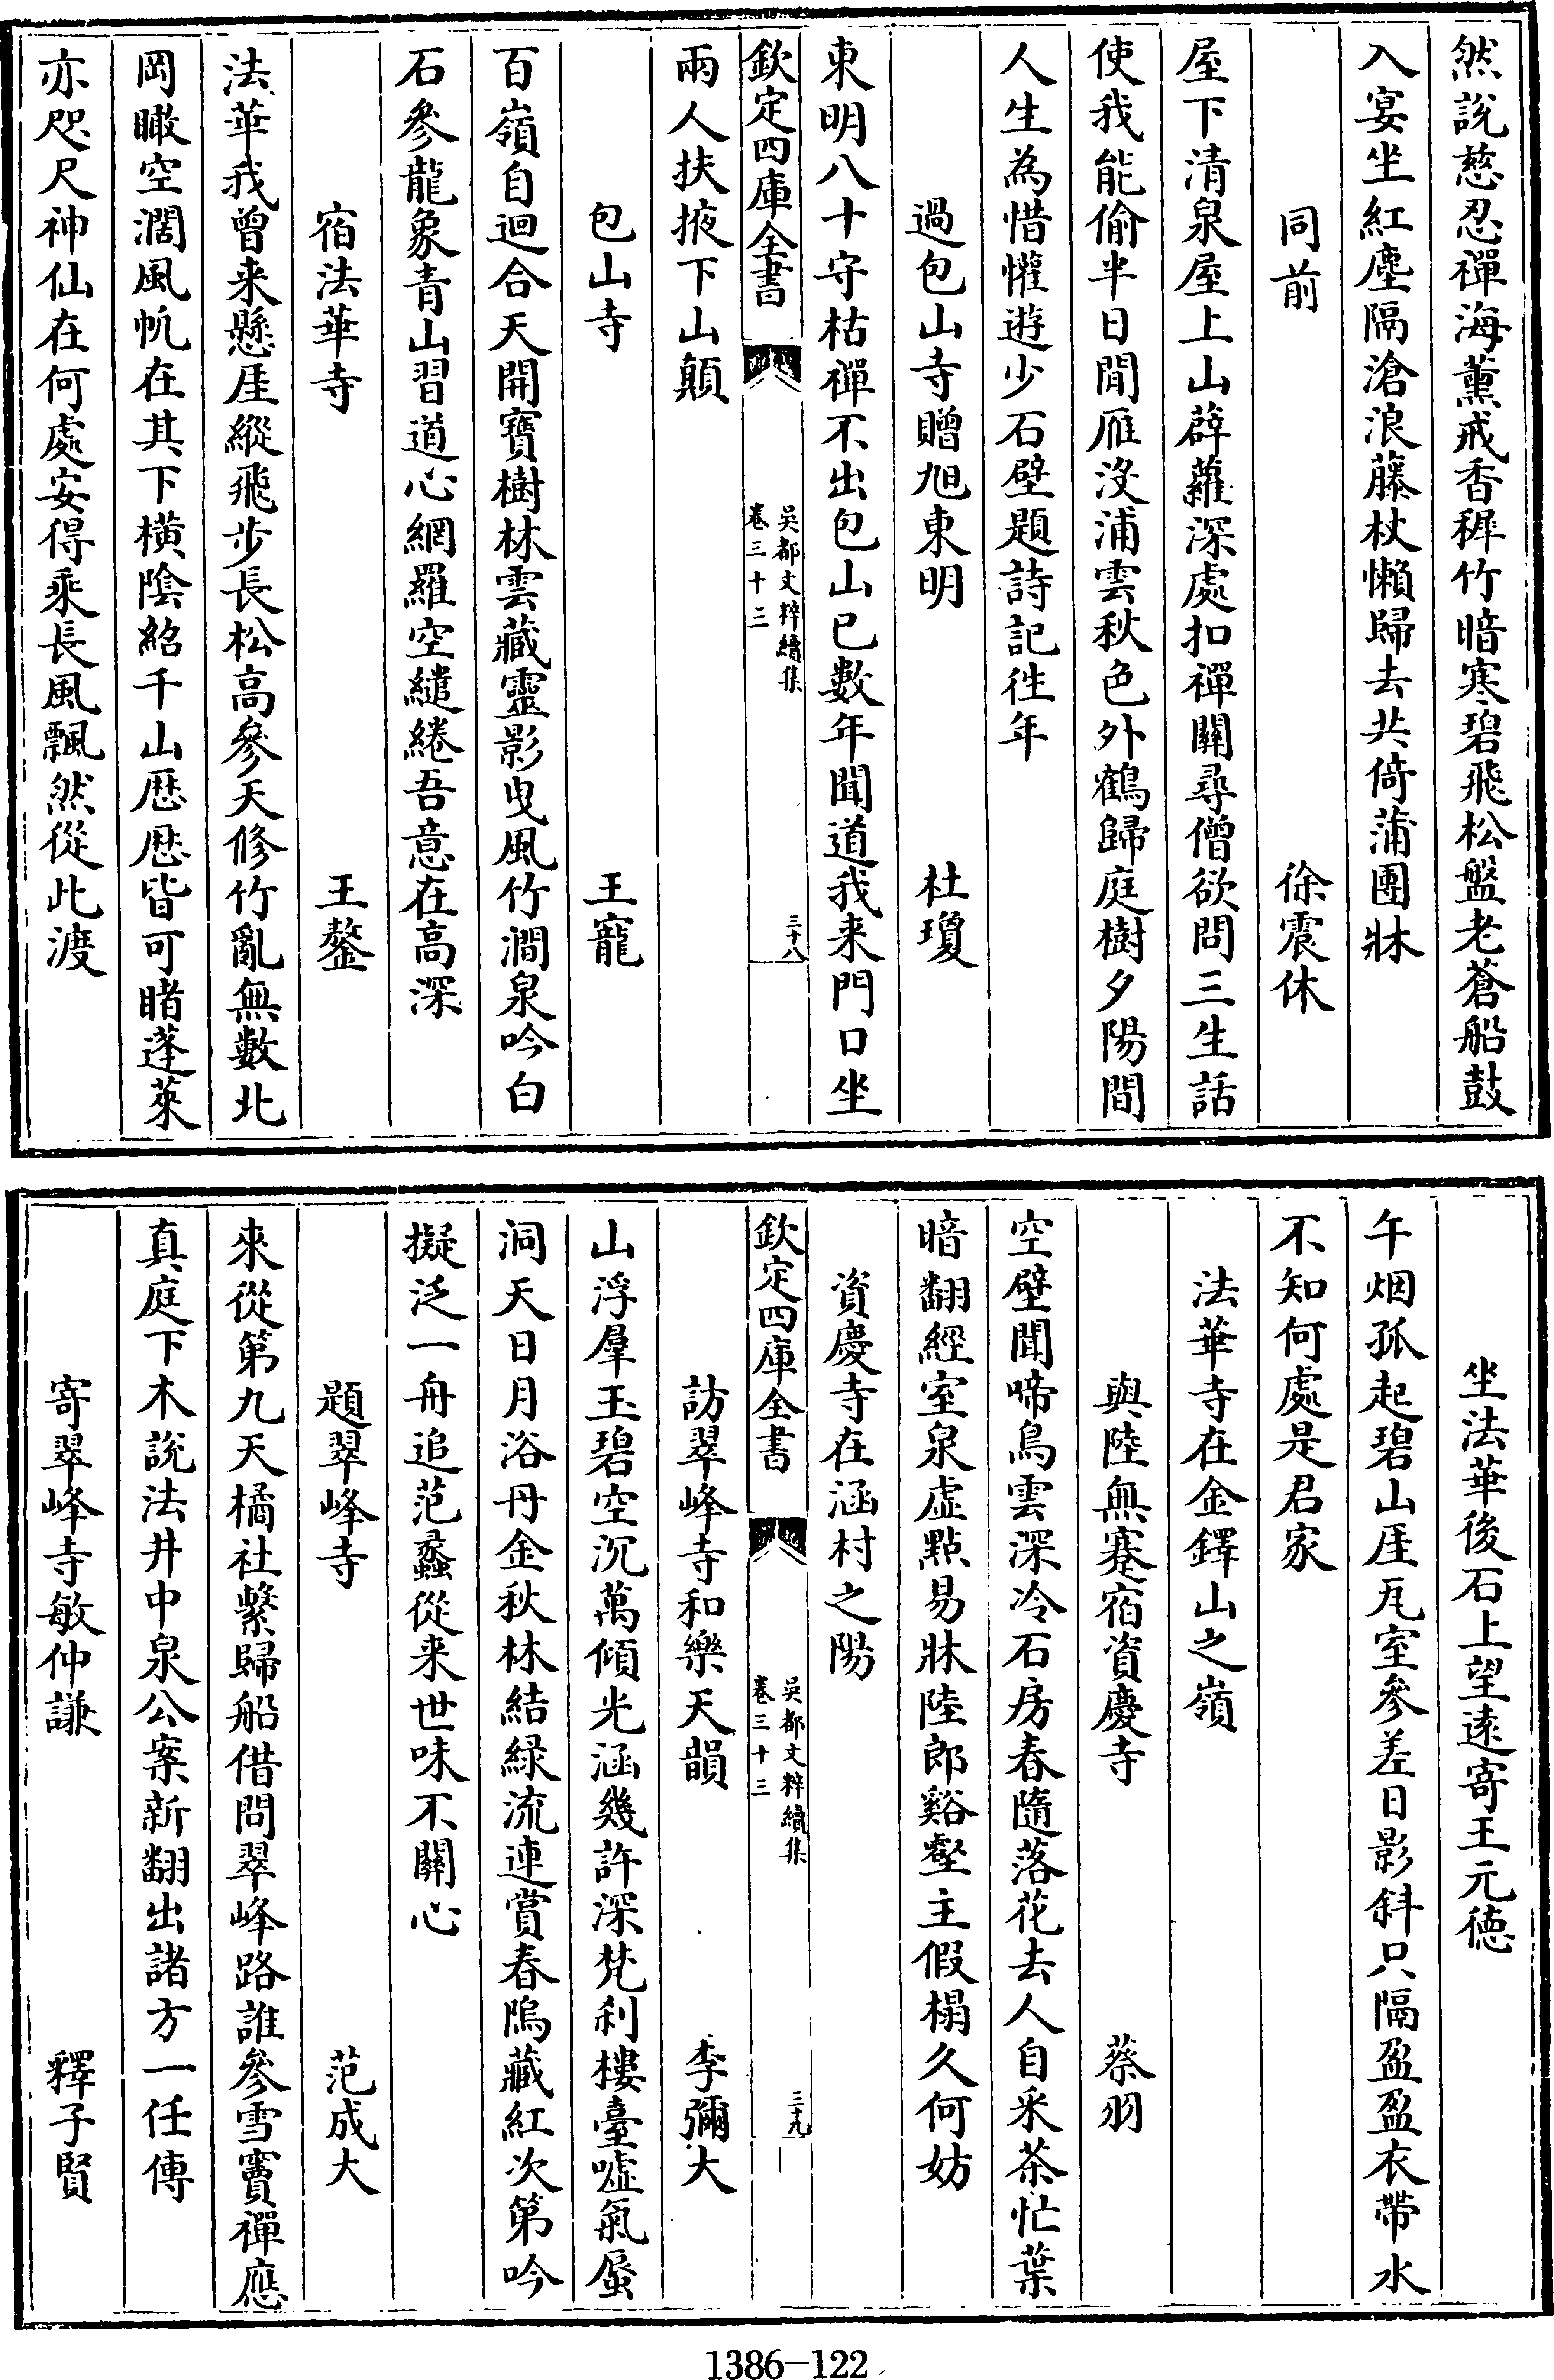 然說慈忍禪海薰戒香穉竹暗寒碧飛松盤老蒼船鼓
入宴坐紅塵隔滄浪藤杖懶歸去共倚蒲團牀
同前 徐震休
屋下清泉屋上山薜蘿深處扣禪關尋僧欲問三生話
使我能偷半日閒雁沒浦雲秋色外鶴歸庭樹夕陽間
人生為惜懽遊少石壁題詩記徃年
過包山寺贈旭東明 杜瓊
東明八十守枯禪不出包山已數年聞道我来門口坐
欽定四庫全書 吳都文粹續集 卷三十三 三十八
兩人扶掖下山顛
包山寺 王寵
百嶺自迴合天開寶樹林雲藏靈影曳風竹澗泉吟白
石參龍象青山習道心網羅空繾綣吾意在高深
宿法華寺 王鏊
法華我曾来懸厓縱飛步長松高參天修竹亂無數北
岡瞰空濶風帆在其下橫陰絽千山歴歴皆可睹蓬萊
亦咫尺神仙在何處安得乘長風飄然從此渡
坐法華後石上望遠寄王元德
午烟孤起碧山厓瓦室參差日影斜只隔盈盈衣帶水
不知何處是君家
法華寺在金鐸山之嶺
與陸無蹇宿資慶寺 蔡羽
空壁聞啼鳥雲深冷石房春隨落花去人自采茶忙葉
暗翻經室泉虛點易牀陸郎谿壑主假榻久何妨
資慶寺在涵村之陽
欽定四庫全書 吳都文粹續集 卷三十三 三十九
訪翠峰寺和樂天韻 李彌大
山浮羣玉碧空沉萬傾光涵幾許深梵刹樓臺噓氣蜃
洞天日月浴丹金秋林結綠流連賞春隖藏紅次第吟
擬泛一舟追范蠡從来世味不關心
題翠峰寺 范成大
來從第九天橘社繫歸船借問翠峰路誰參雪竇禪應
真庭下木說法井中泉公案新翻出諸方一任傳
寄翠峰寺敏仲謙 釋子賢
1386-122